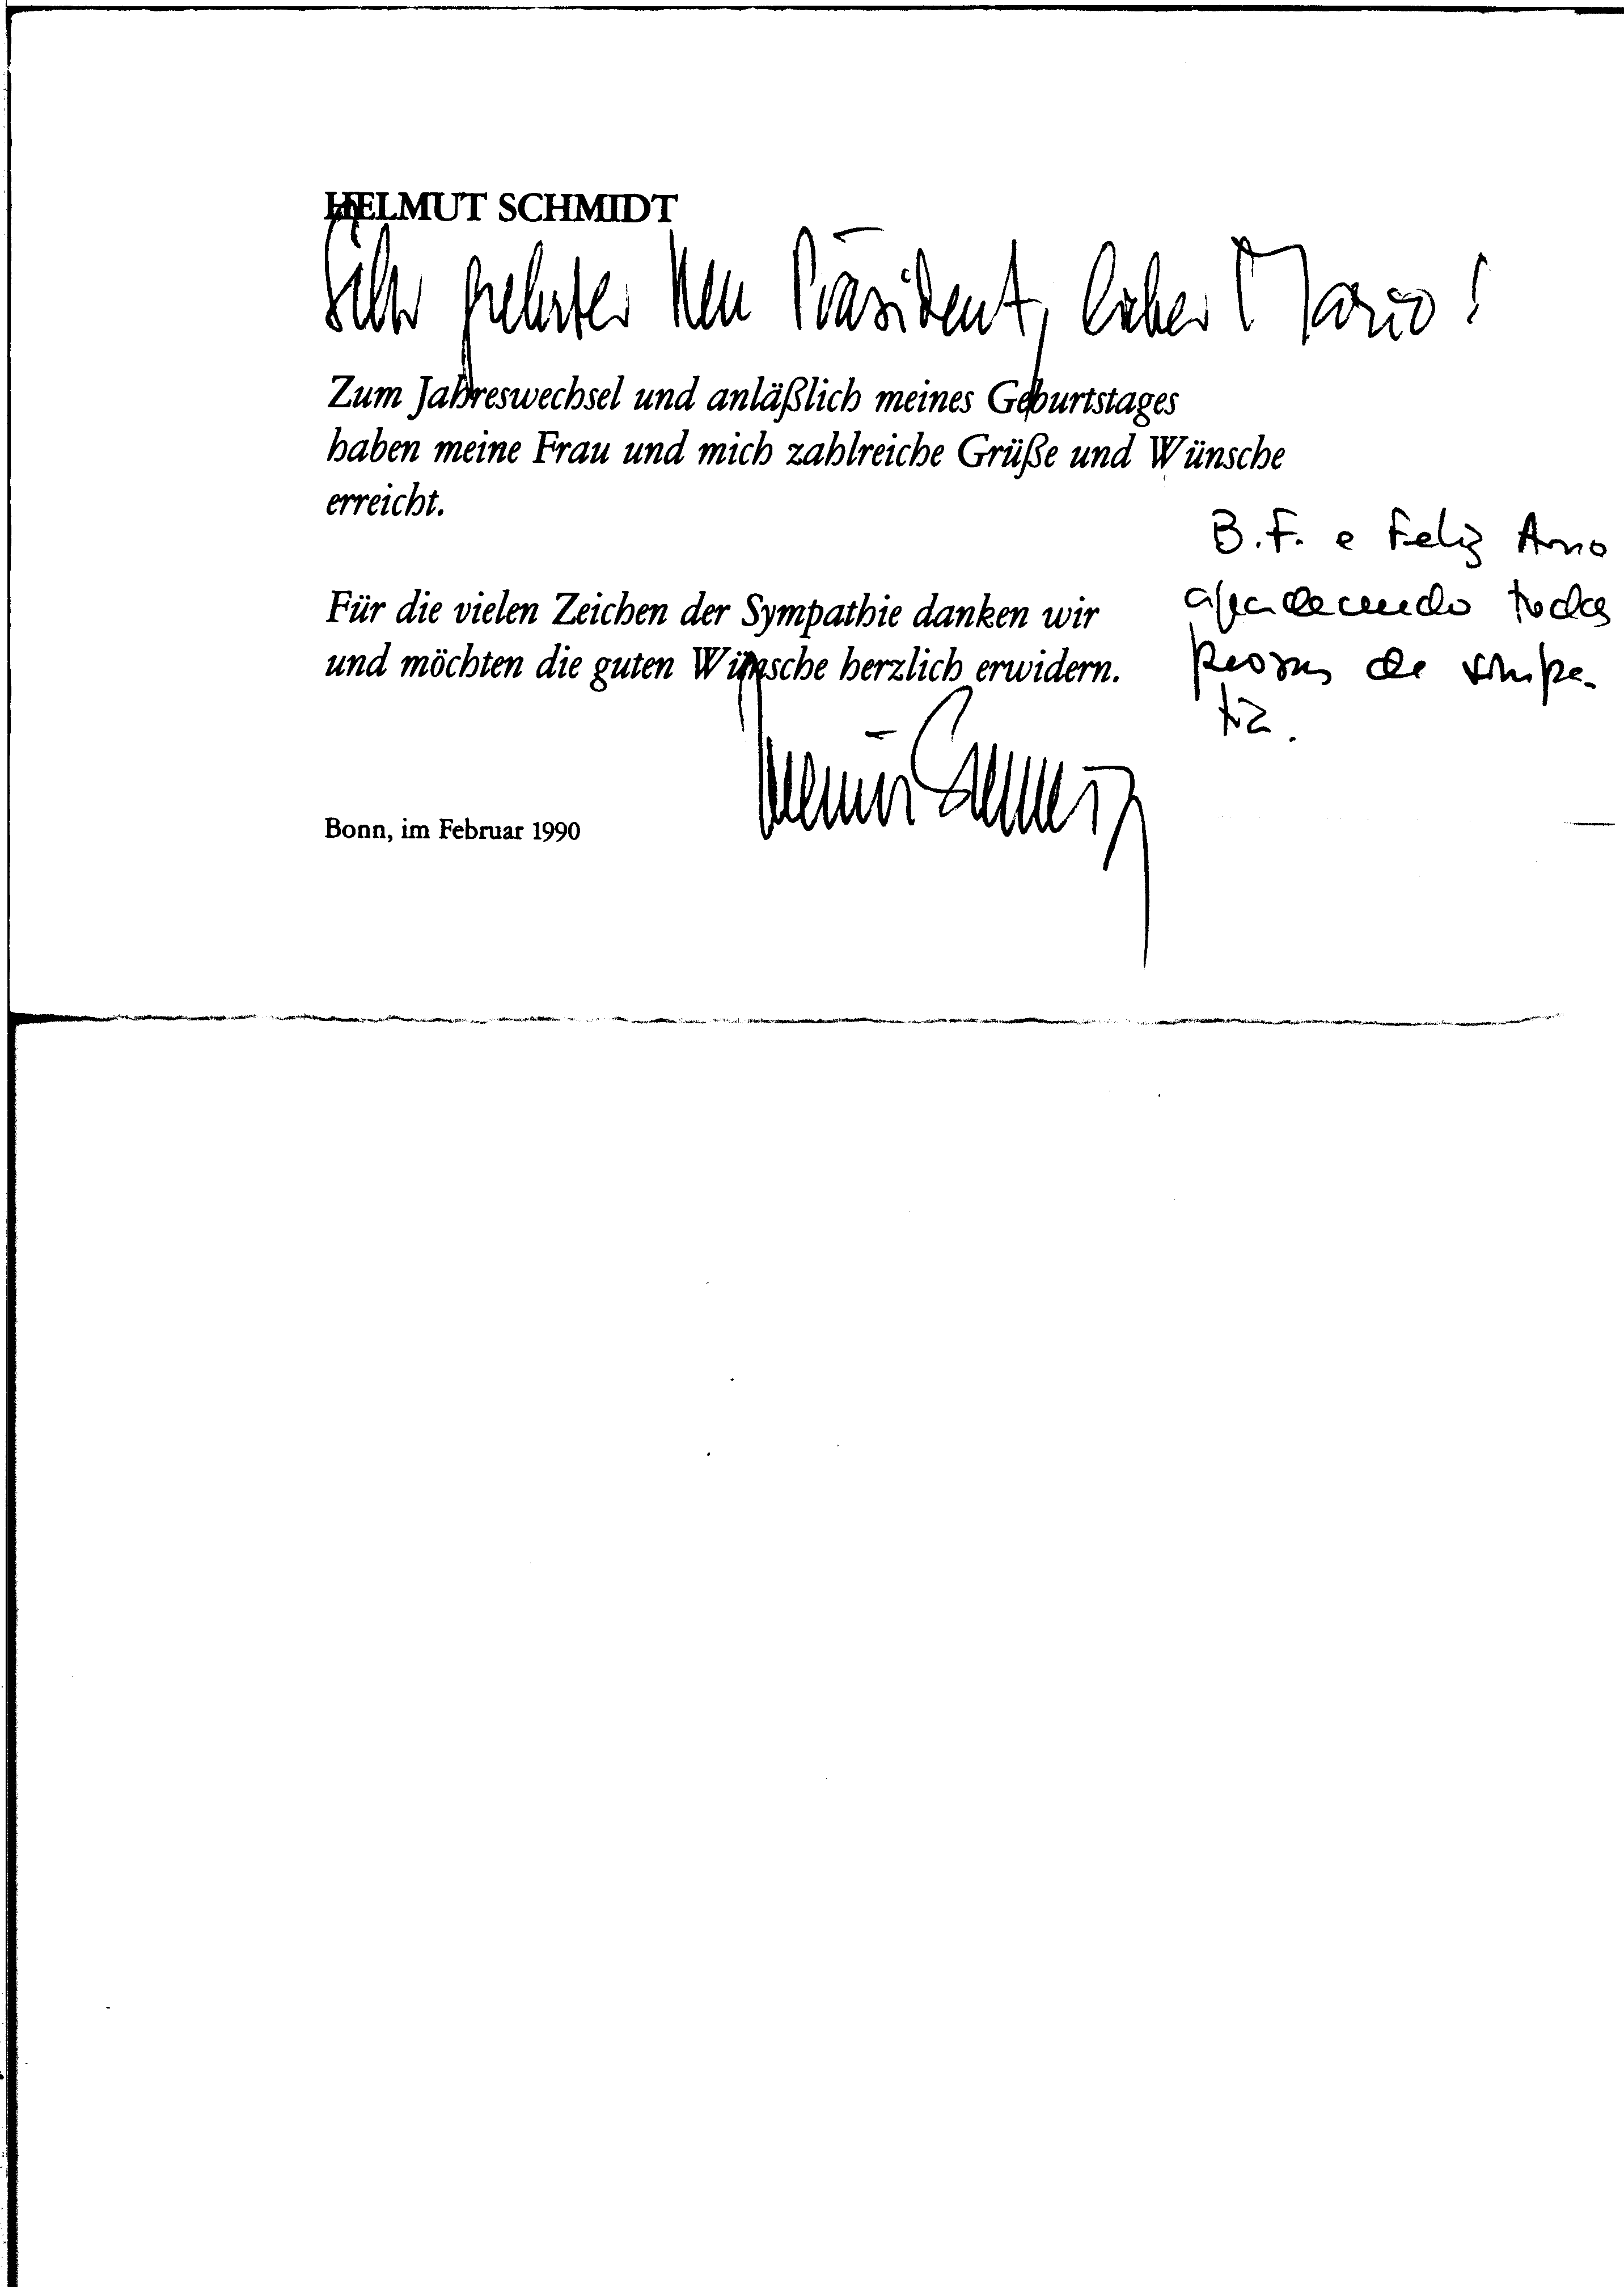 HELMUT SCHMIDT
Sehr geehrter Herr Präsident, lieber Mario!
Zum Jahreswechsel und anläßlich meines Geburtstages
haben meine Frau und mich zahlreiche Grüße und Wünsche
erreicht.
B.F. e Feliz Ano
agradecendo todas
de simpa-
tia.
Für die vielen Zeichen der Sympathie danken wir
und möchten die guten Wünsche herzlich erwidern.
Helmut Schmidt
Bonn, im Februar 1990